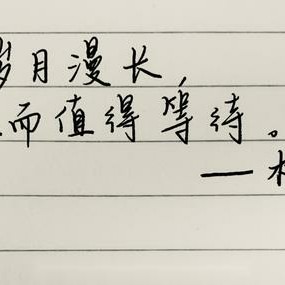 岁月漫长
而值得等待。
—